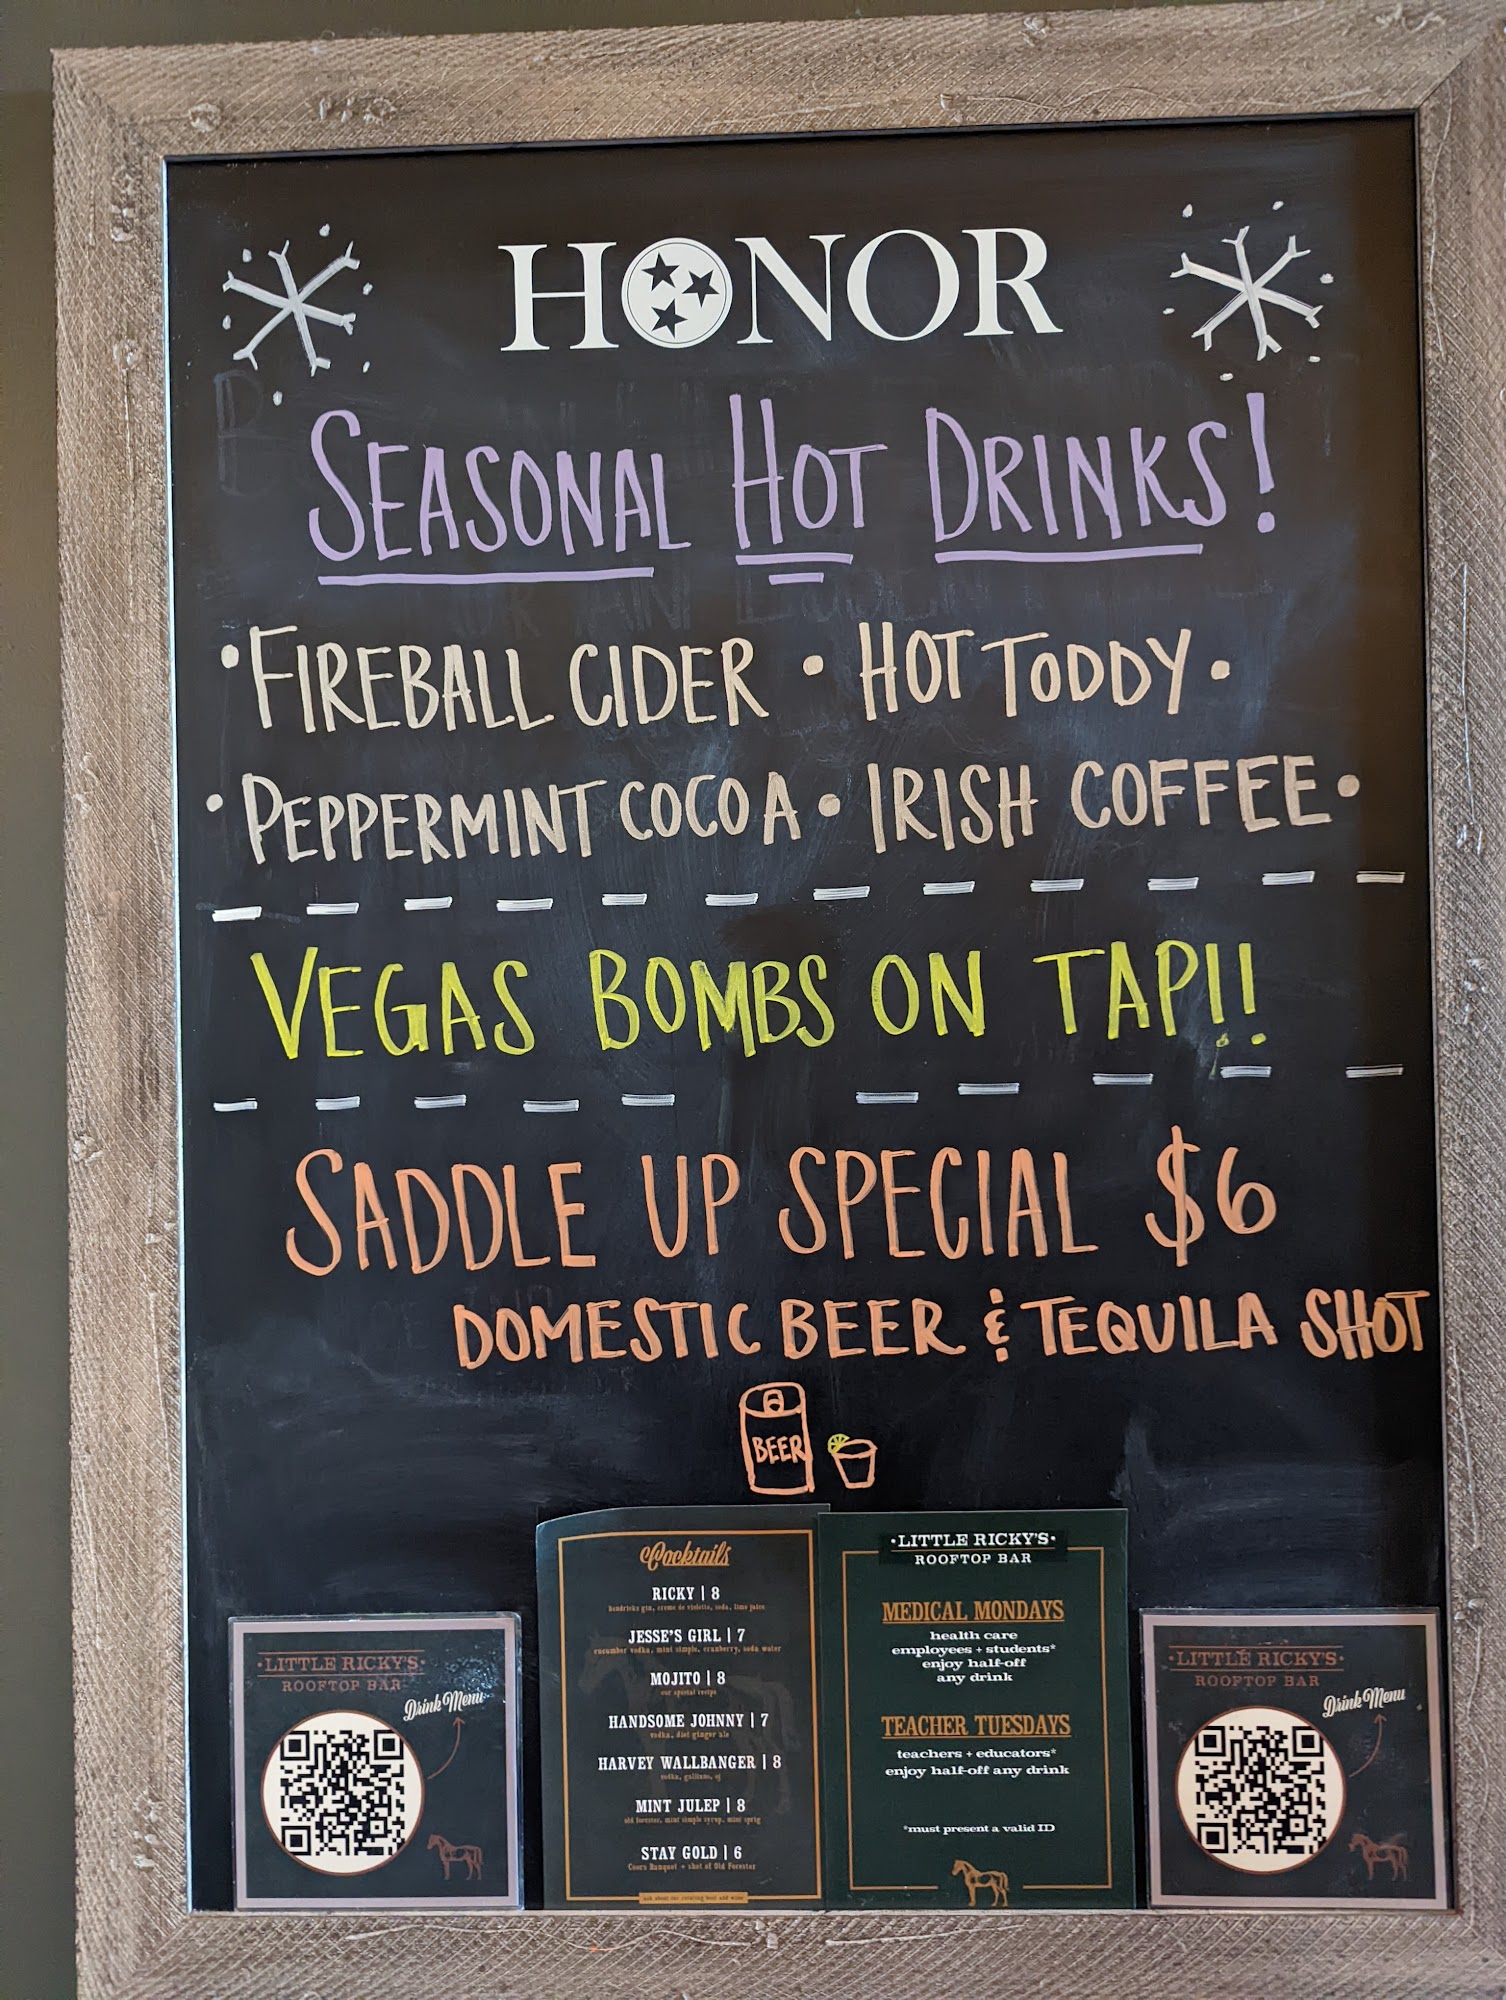 HONOR
SEASONAL HOT DRINKS!
• FIREBALL CIDER • HOT TODDY •
• PEPPERMINT COCOA • IRISH COFFEE •
VEGAS BOMBS ON TAP!!
SADDLE UP SPECIAL $6
DOMESTIC BEER & TEQUILA SHOT
BEER
Cocktails
RICKY | 8
hendricks gin, creme de violette, soda, lime juice
JESSE'S GIRL | 7
cucumber vodka, mint simple, cranberry, soda water
MOJITO | 8
our special recipe
HANDSOME JOHNNY | 7
vodka, diet ginger ale
HARVEY WALLBANGER | 8
vodka, galliano, oj
MINT JULEP | 8
old forester, mint simple syrup, mint sprig
STAY GOLD | 6
Coors Banquet + shot of Old Forester
ask about our rotating beer and wine
•LITTLE RICKY'S•
ROOFTOP BAR
MEDICAL MONDAYS
health care
employees + students*
enjoy half-off
any drink
TEACHER TUESDAYS
teachers + educators*
enjoy half-off any drink
*must present a valid ID
•LITTLE RICKY'S•
ROOFTOP BAR
Drink Menu
•LITTLE RICKY'S•
ROOFTOP BAR
Drink Menu